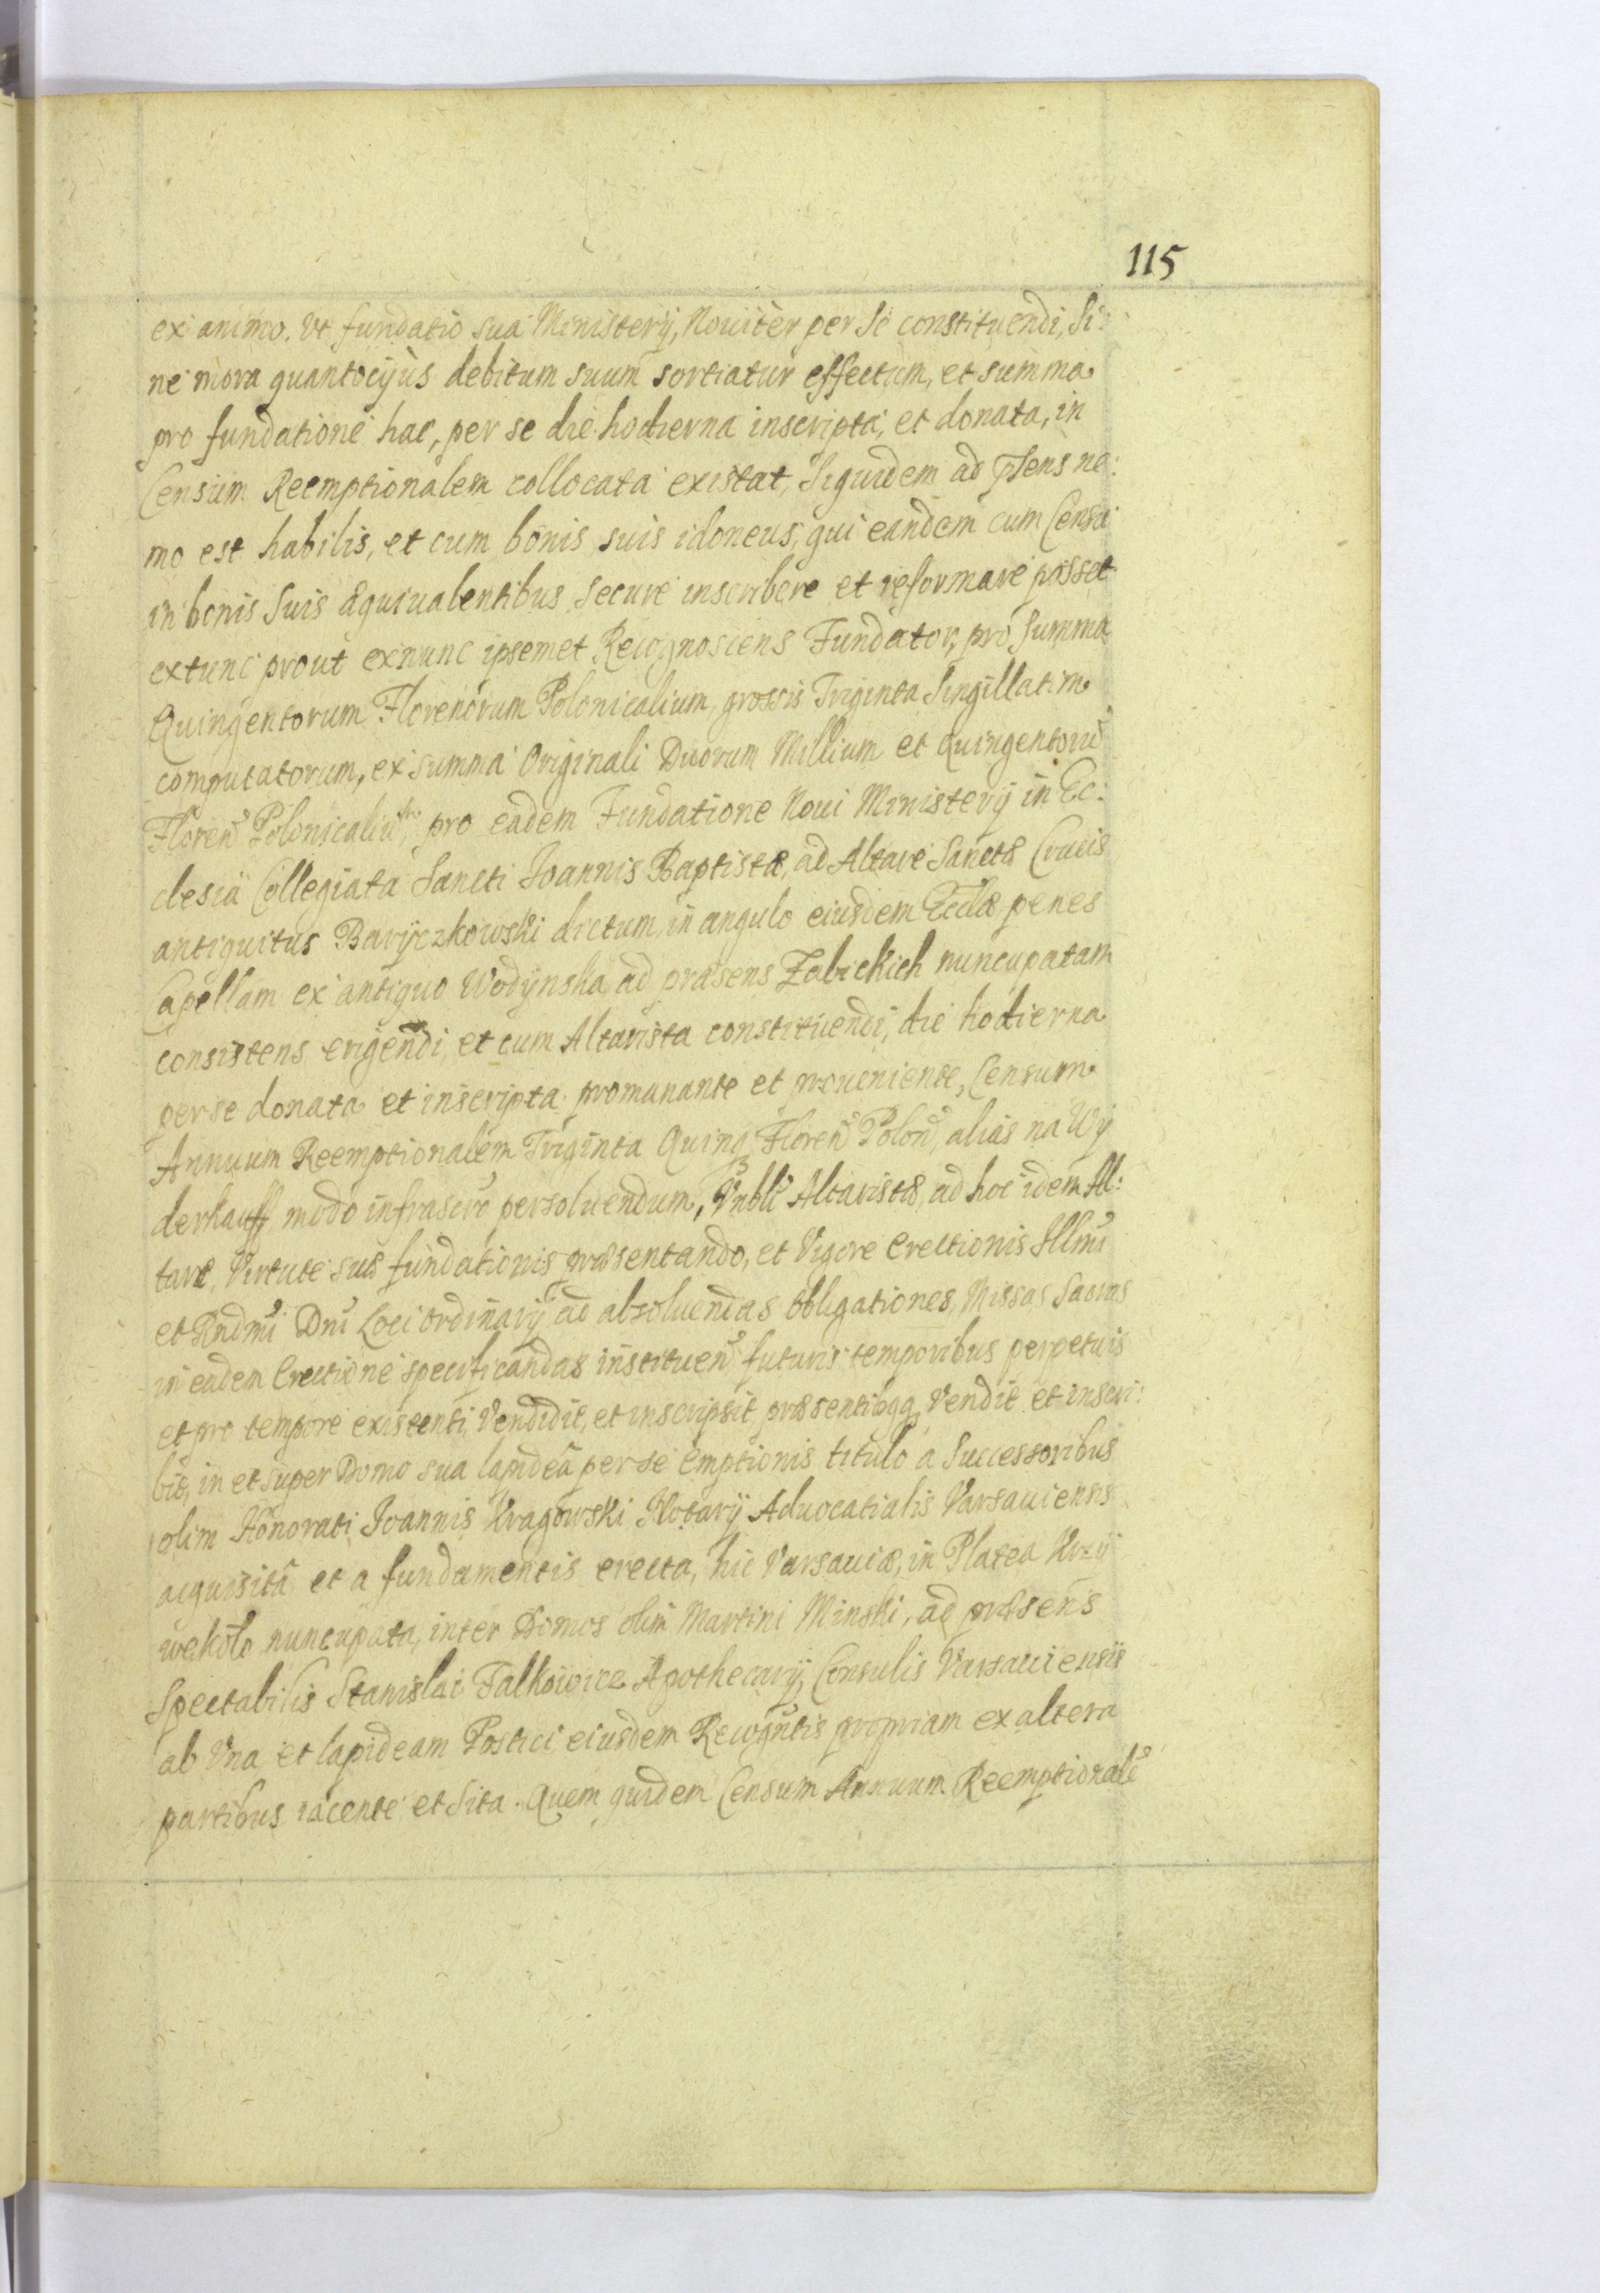 115
ex animo. Vt fundatio sua Ministerÿ, Nouiter per se constituendi, Si:
ne mora quantocÿus debitum suum sortiatur effectum, et summa
pro fundatione hac, per se die hodierna inscripta, et donata, in
Censum Reemptionalem collocata existat, Siquidem ad psens ne:
mo est habilis, et cum bonis suis idoneus, qui eandem cum Censu
in bonis suis æquiualentibus secure inscribere et reformare posset
extunc prout exnunc ipsemet Recognoscens Fundator, pro Summa
Quingentorum Florenorum Polonicalium, grossis Triginta Singillatim
computatorum, ex summa Originali Duorum Millium et Quingentorũ
Floren Polonicaliũ, pro eadem Fundatione Noui Ministerÿ in Ec:
clesia Collegiata Sancti Joannis Baptistæ, ad Altare Sanctæ Crucis
antiquitus Barÿczkowski dictum, in angulo eiusdem Ecclæ penes
Capellam ex antiquo Wodÿnska, ad præsens Zabickich nuncupatam
consistens erigendi, et cum Altarista constituendi, die hodierna
per se donata et inscripta promanante et proueniente, Censum
Annuum Reemptionalem Triginta Quinq Floren Polon, alias na Wÿ
derkauff modo infrascro persoluendum, Vnbli Altaristæ, ad hoc idem Al:
tare, Virtute suæ fundationis præsentando, et Vigore Erectionis Illmi
et Rndmi Dni Loci Ordinarÿ ad absoluendas obligationes, Missas Sacras
in eadem Erectione specificandas instituen futuris temporibus perpetuis
et pro tempore existenti, Vendidit, et inscripsit, præsentibqq Vendit et inscri:
bit, in et super Domo sua lapidea per se emptionis titulo a Successoribus
olim Honorati Joannis Kragowski Notarÿ Aduocatialis Varsauiensis
acquisita et a fundamentis erecta, hic Varsauiæ, in Platea Krzÿ
wekoło nuncupata, inter Domos olim Martini Minski, ad præsens
Spectabilis Stanislai Falkowicz Apothecarÿ, Consulis Varsauiensis
ab Vna et lapideam Postici eiusdem Recogntis propriam ex altera
partibus iacente et sita. Quem quidem Censum Annuum Reemptionalẽ